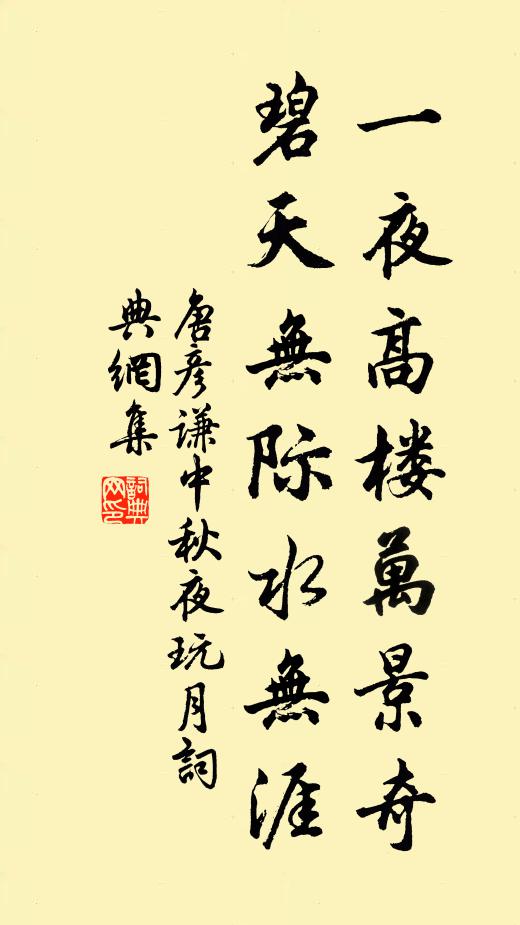 一夜高楼萬景奇
碧天無际水無涯
唐彦谦中秋夜玩月詞
典網集
詞典網印